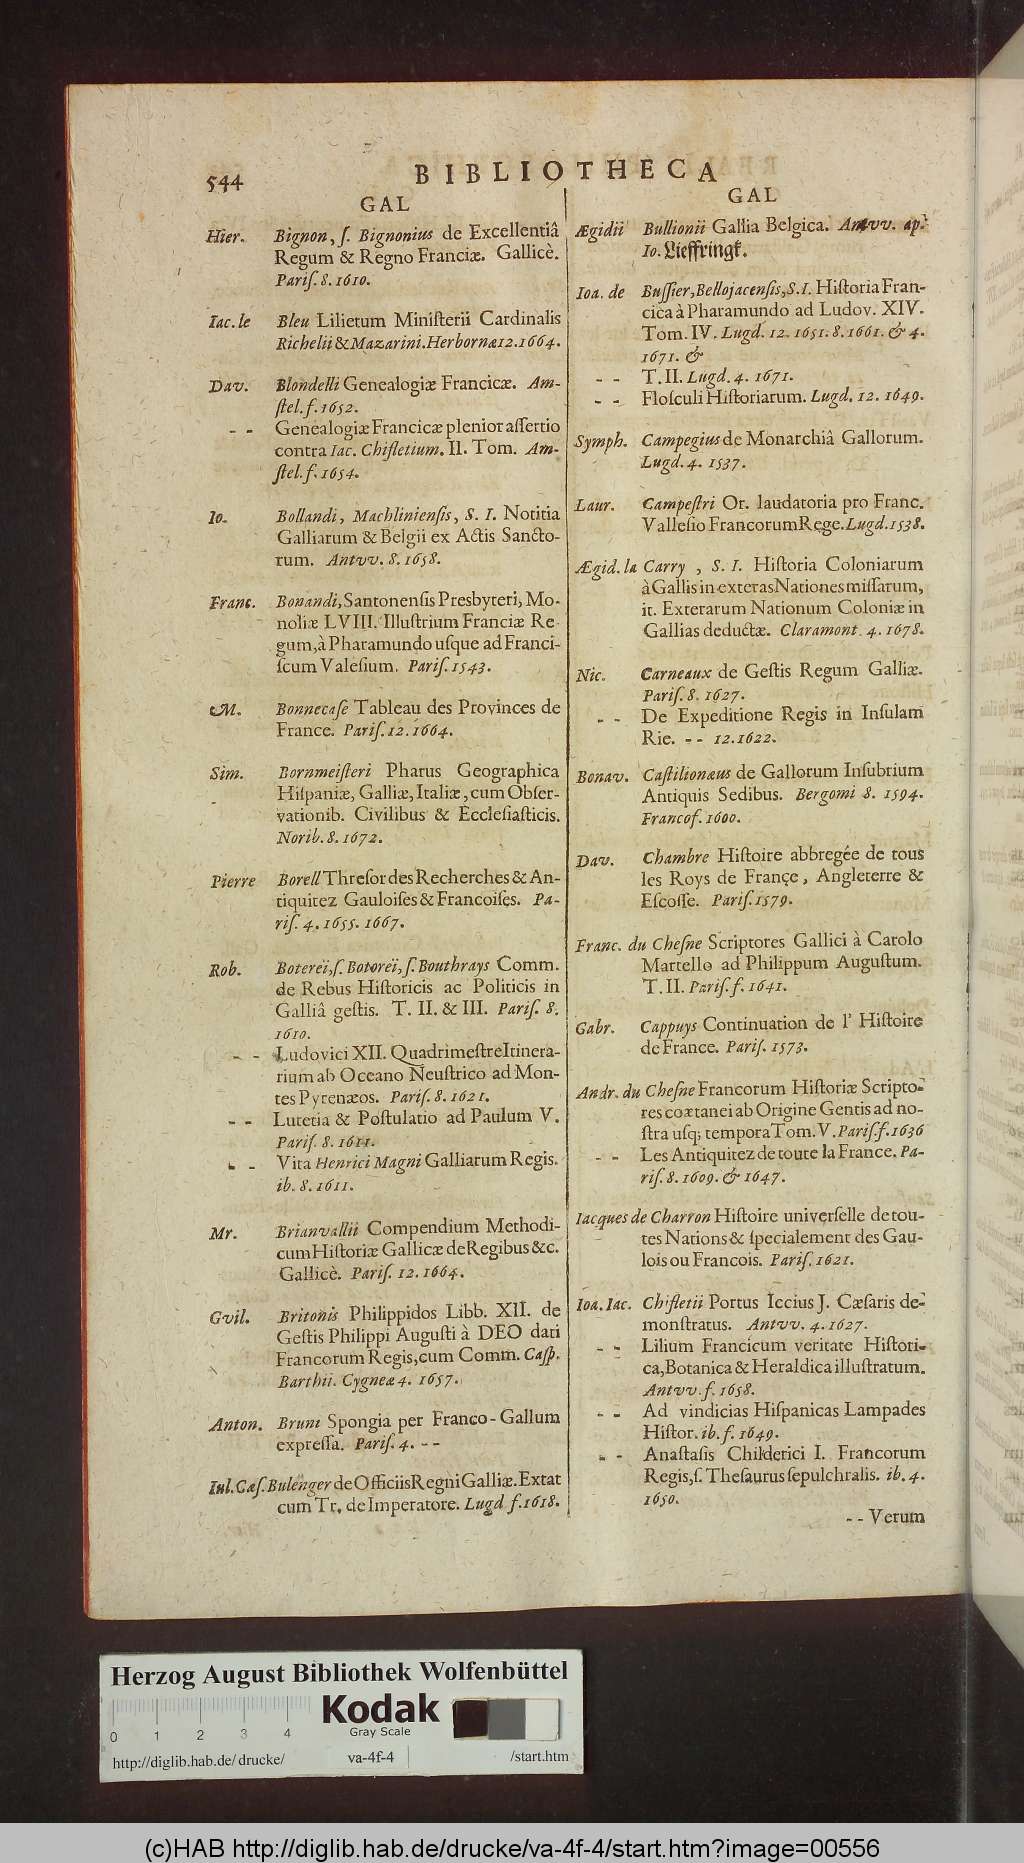 544
BIBLIOTHECA
GAL
Hier. Bignon, ſ. Bignonius de Excellentiâ
Regum & Regno Franciæ. Gallicè.
Pariſ. 8. 1610.
Iac. le Bleu Lilietum Miniſterii Cardinalis
Richelii & Mazarini. Herbornæ 12. 1664.
Dav. Blondelli Genealogiæ Francicæ. Am-
ſtel. f. 1652.
- - Genealogiæ Francicæ plenior aſſertio
contra Iac. Chifletium. II. Tom. Am-
ſtel. f. 1654.
Io. Bollandi, Machlinienſis, S. I. Notitia
Galliarum & Belgii ex Actis Sancto-
rum. Antvv. 8. 1658.
Franc. Bonandi, Santonenſis Presbyteri, Mo-
noliæ LVIII. Illuſtrium Franciæ Re
gum, à Pharamundo uſque ad Franci-
ſcum Valeſium. Pariſ. 1543.
M. Bonnecaſe Tableau des Provinces de
France. Pariſ. 12. 1664.
Sim. Bornmeiſteri Pharus Geographica
Hiſpaniæ, Galliæ, Italiæ, cum Obſer-
vationib. Civilibus & Eccleſiaſticis.
Norib. 8. 1672.
Pierre Borell Threſor des Recherches & An-
tiquitez Gauloiſes & Francoiſes. Pa-
riſ. 4. 1655. 1667.
Rob. Botereï, ſ. Botoreï, ſ. Bouthrays Comm.
de Rebus Hiſtoricis ac Politicis in
Galliâ geſtis. T. II. & III. Pariſ. 8.
1610.
- - Ludovici XII. Quadrimeſtre Itinera-
rium ab Oceano Neuſtrico ad Mon-
tes Pyrenæos. Pariſ. 8. 1621.
- - Lutetia & Poſtulatio ad Paulum V.
Pariſ. 8. 1611.
- - Vita Henrici Magni Galliarum Regis.
ib. 8. 1611.
Mr. Brianvallii Compendium Methodi-
cum Hiſtoriæ Gallicæ de Regibus &c.
Gallicè. Pariſ. 12. 1664.
Gvil. Britonis Philippidos Libb. XII. de
Geſtis Philippi Auguſti à DEO dati
Francorum Regis, cum Comm. Caſp.
Barthii. Cygneæ 4. 1657.
Anton. Bruni Spongia per Franco-Gallum
expreſſa. Pariſ. 4. - -
Iul. Cæſ. Bulenger de Officiis Regni Galliæ. Extat
cum Tr. de Imperatore. Lugd f. 1618.
GAL
Ægidii Bullionii Gallia Belgica. Antvv. ap.
Io. Lieffringk.
Ioa. de Buſſier, Bellojacenſis, S. I. Hiſtoria Fran-
cica à Pharamundo ad Ludov. XIV.
Tom. IV. Lugd. 12. 1651. 8. 1661. & 4.
1671. &
- - T. II. Lugd. 4. 1671.
- - Floſculi Hiſtoriarum. Lugd. 12. 1649.
Symph. Campegius de Monarchiâ Gallorum.
Lugd. 4. 1537.
Laur. Campeſtri Or. laudatoria pro Franc.
Valleſio Francorum Rege. Lugd. 1538.
Ægid. la Carry, S. I. Hiſtoria Coloniarum
à Gallis in exteras Nationes miſſarum,
it. Exterarum Nationum Coloniæ in
Gallias deductæ. Claramont. 4. 1678.
Nic. Carneaux de Geſtis Regum Galliæ.
Pariſ. 8. 1627.
- - De Expeditione Regis in Inſulam
Rie. - - 12. 1622.
Bonav. Caſtilionæus de Gallorum Inſubrium
Antiquis Sedibus. Bergomi 8. 1594.
Francof. 1600.
Dav. Chambre Hiſtoire abbregée de tous
les Roys de Françe, Angleterre &
Eſcoſſe. Pariſ. 1579.
Franc. du Cheſne Scriptores Gallici à Carolo
Martello ad Philippum Auguſtum.
T. II. Pariſ. f. 1641.
Gabr. Cappuys Continuation de l' Hiſtoire
de France. Pariſ. 1573.
Andr. du Cheſne Francorum Hiſtoriæ Scripto-
res coætanei ab Origine Gentis ad no-
ſtra uſq; tempora Tom. V. Pariſ. f. 1636
- - Les Antiquitez de toute la France. Pa-
riſ. 8. 1609. & 1647.
Iacques de Charron Hiſtoire univerſelle de tou-
tes Nations & ſpecialement des Gau-
lois ou Francois. Pariſ. 1621.
Ioa. Iac. Chifletii Portus Iccius J. Cæſaris de-
monſtratus. Antvv. 4. 1627.
- - Lilium Francicum veritate Hiſtori-
ca, Botanica & Heraldica illuſtratum.
Antvv. f. 1658.
- - Ad vindicias Hiſpanicas Lampades
Hiſtor. ib. f. 1649.
- - Anaſtaſis Childerici I. Francorum
Regis, ſ. Theſaurus ſepulchralis. ib. 4.
1650.
- - Verum
Herzog August Bibliothek Wolfenbüttel
0 1 2 3 4
Kodak
Gray Scale
http://diglib.hab.de/drucke/ va-4f-4 /start.htm
(c)HAB http://diglib.hab.de/drucke/va-4f-4/start.htm?image=00556